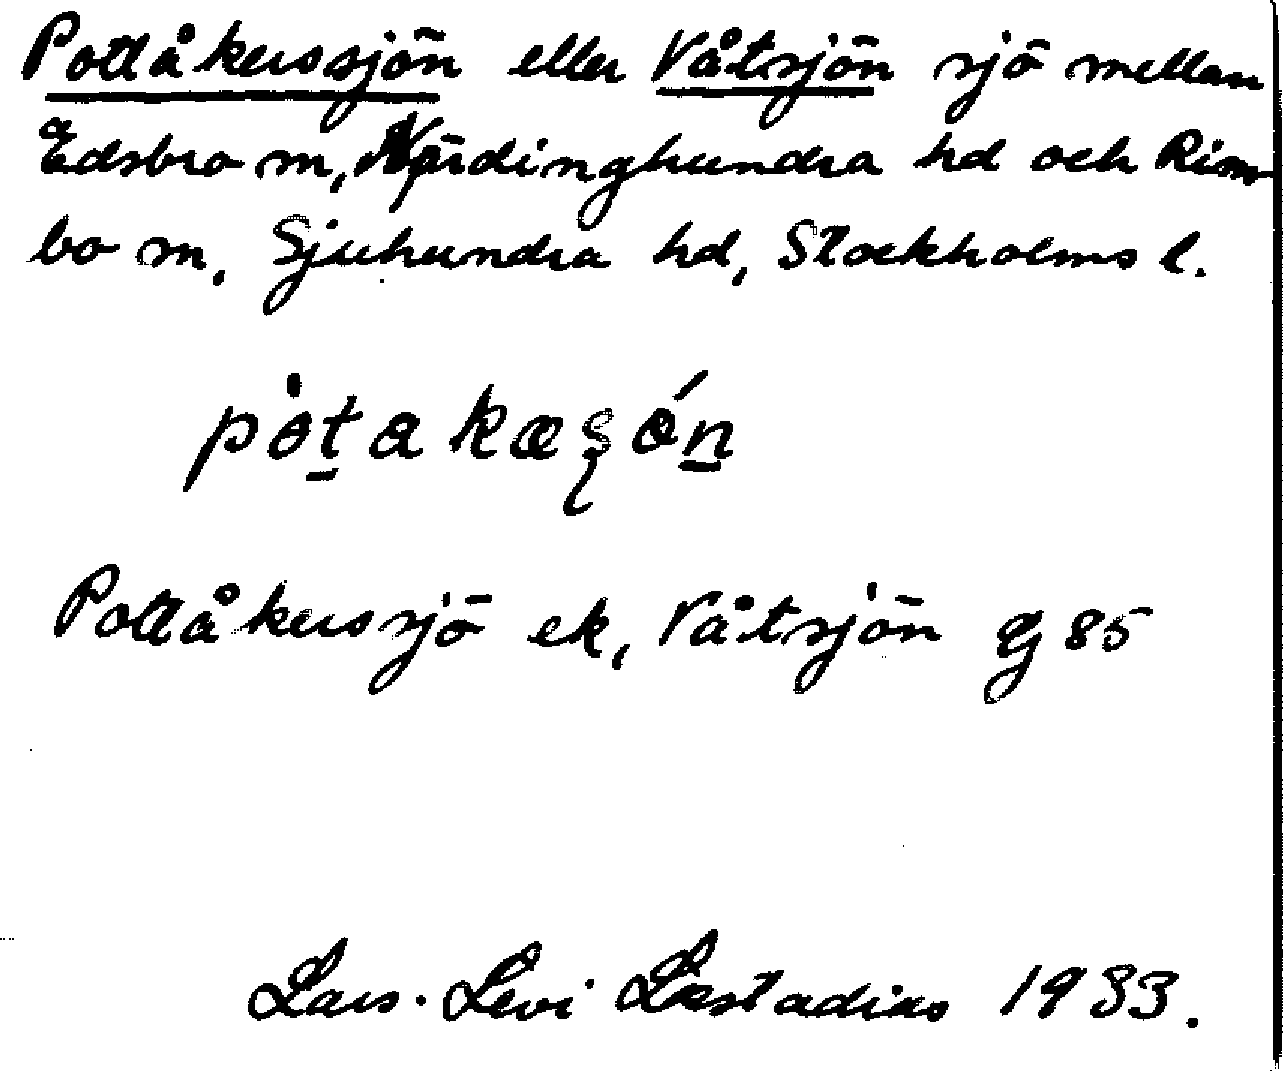 Pottåkerssjön eller Våtsjön sjö mellan
Edsbro sn, Närdinghundra hd och Rim-
bo sn, Sjuhundra hd, Stockholms l.
pòt̠akæʂǿn̠
Pottåkerssjö ek, Våtsjön g 85
Lars-Levi Læstadius 1933.